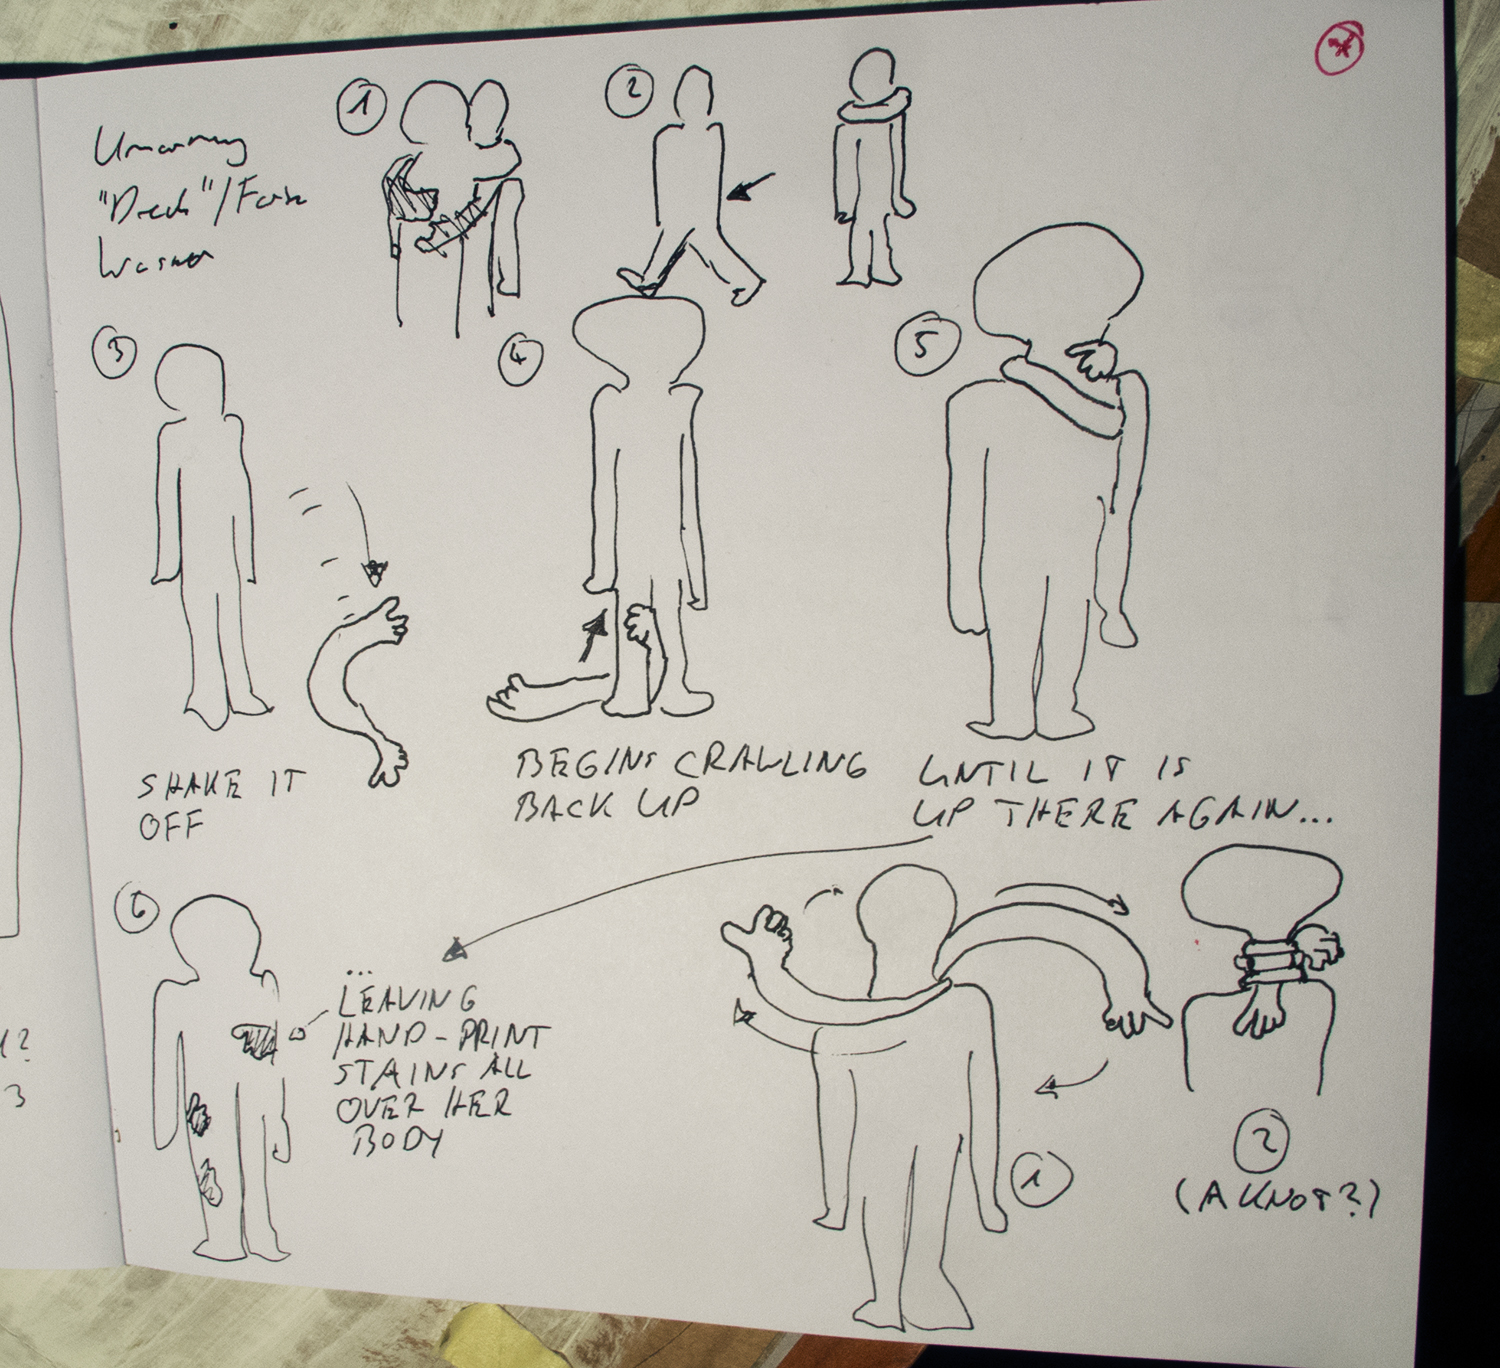 Umarmung
"Dreck"/Farbe
Wasser
1
2
3
4
5
SHAKE IT
OFF
BEGINS CRAWLING
BACK UP
UNTIL IT IS
UP THERE AGAIN...
6
...
LEAVING
HAND-PRINT
STAINS ALL
OVER HER
BODY
1
2
(A KNOT?)
?
3